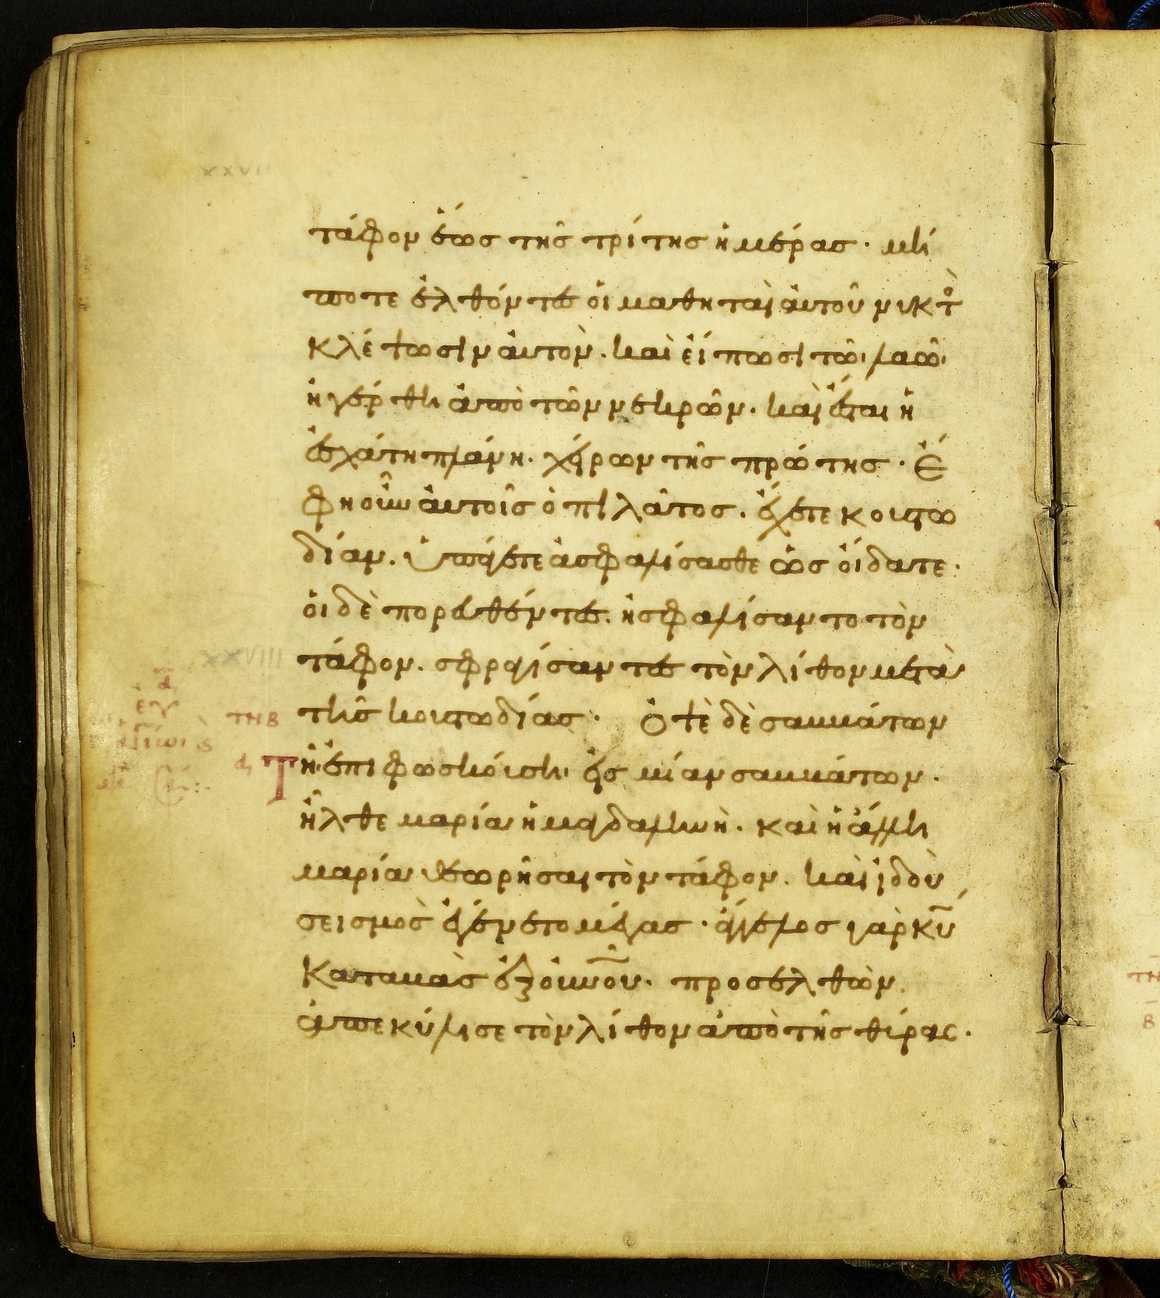 xxvii
τάφον ἕως τῆς τρίτης ἡμέρας · μή
ποτε ἐλθόντες οἱ μαθηταὶ αὐτοῦ νυκτὸ
κλέψωσιν αὐτὸν · καὶ εἴπωσι τῶ λαῶ ·
ἠγέρθη ἀπὸ τῶν νεκρῶν · καὶ ἔσται ἡ
ἐσχάτη πλάνη · χείρων τῆς πρώτης · Ἔ
φη οὖν αὐτοῖς ὁ πιλᾶτος · ἔχετε κουστω
δίαν · ὑπάγετε ἀσφαλίσασθε ὡς οἴδατε ·
οἱ δὲ πορευθέντες · ἠσφαλίσαντο τὸν
xxviii
τάφον · σφραγίσαντες τὸν λίθον μετὰ
τῆς κουστωδίας · Ὀψὲ δὲ σαββάτων
τη β
Τῆ ἐπιφωσκούση · εἰς μίαν σαββάτων ·
ἦλθε μαρία ἡ μαγδαληνὴ · καὶ ἡ ἄλλη
μαρία θεωρῆσαι τὸν τάφον · καὶ ἰδοὺ
σεισμὸς ἐγένετο μέγας · ἄγγελος γὰρ κῦ
καταβὰς ἐξ οὐνοῦ · προσελθὼν
ἀπεκύλισε τὸν λίθον ἀπὸ τῆς θύρας ·